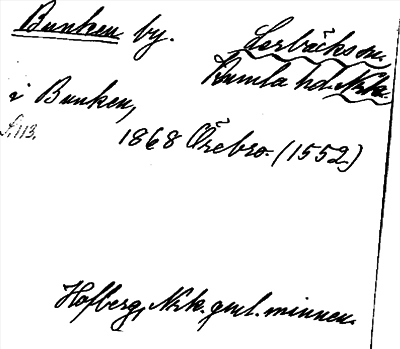 Bunken by.
Lerbäcks sn.
Kumla hd. Nrk.
i Bunken,
S. 113.
1868 Örebro. (1552)
Hofberg, Nrk. gml. minnen.